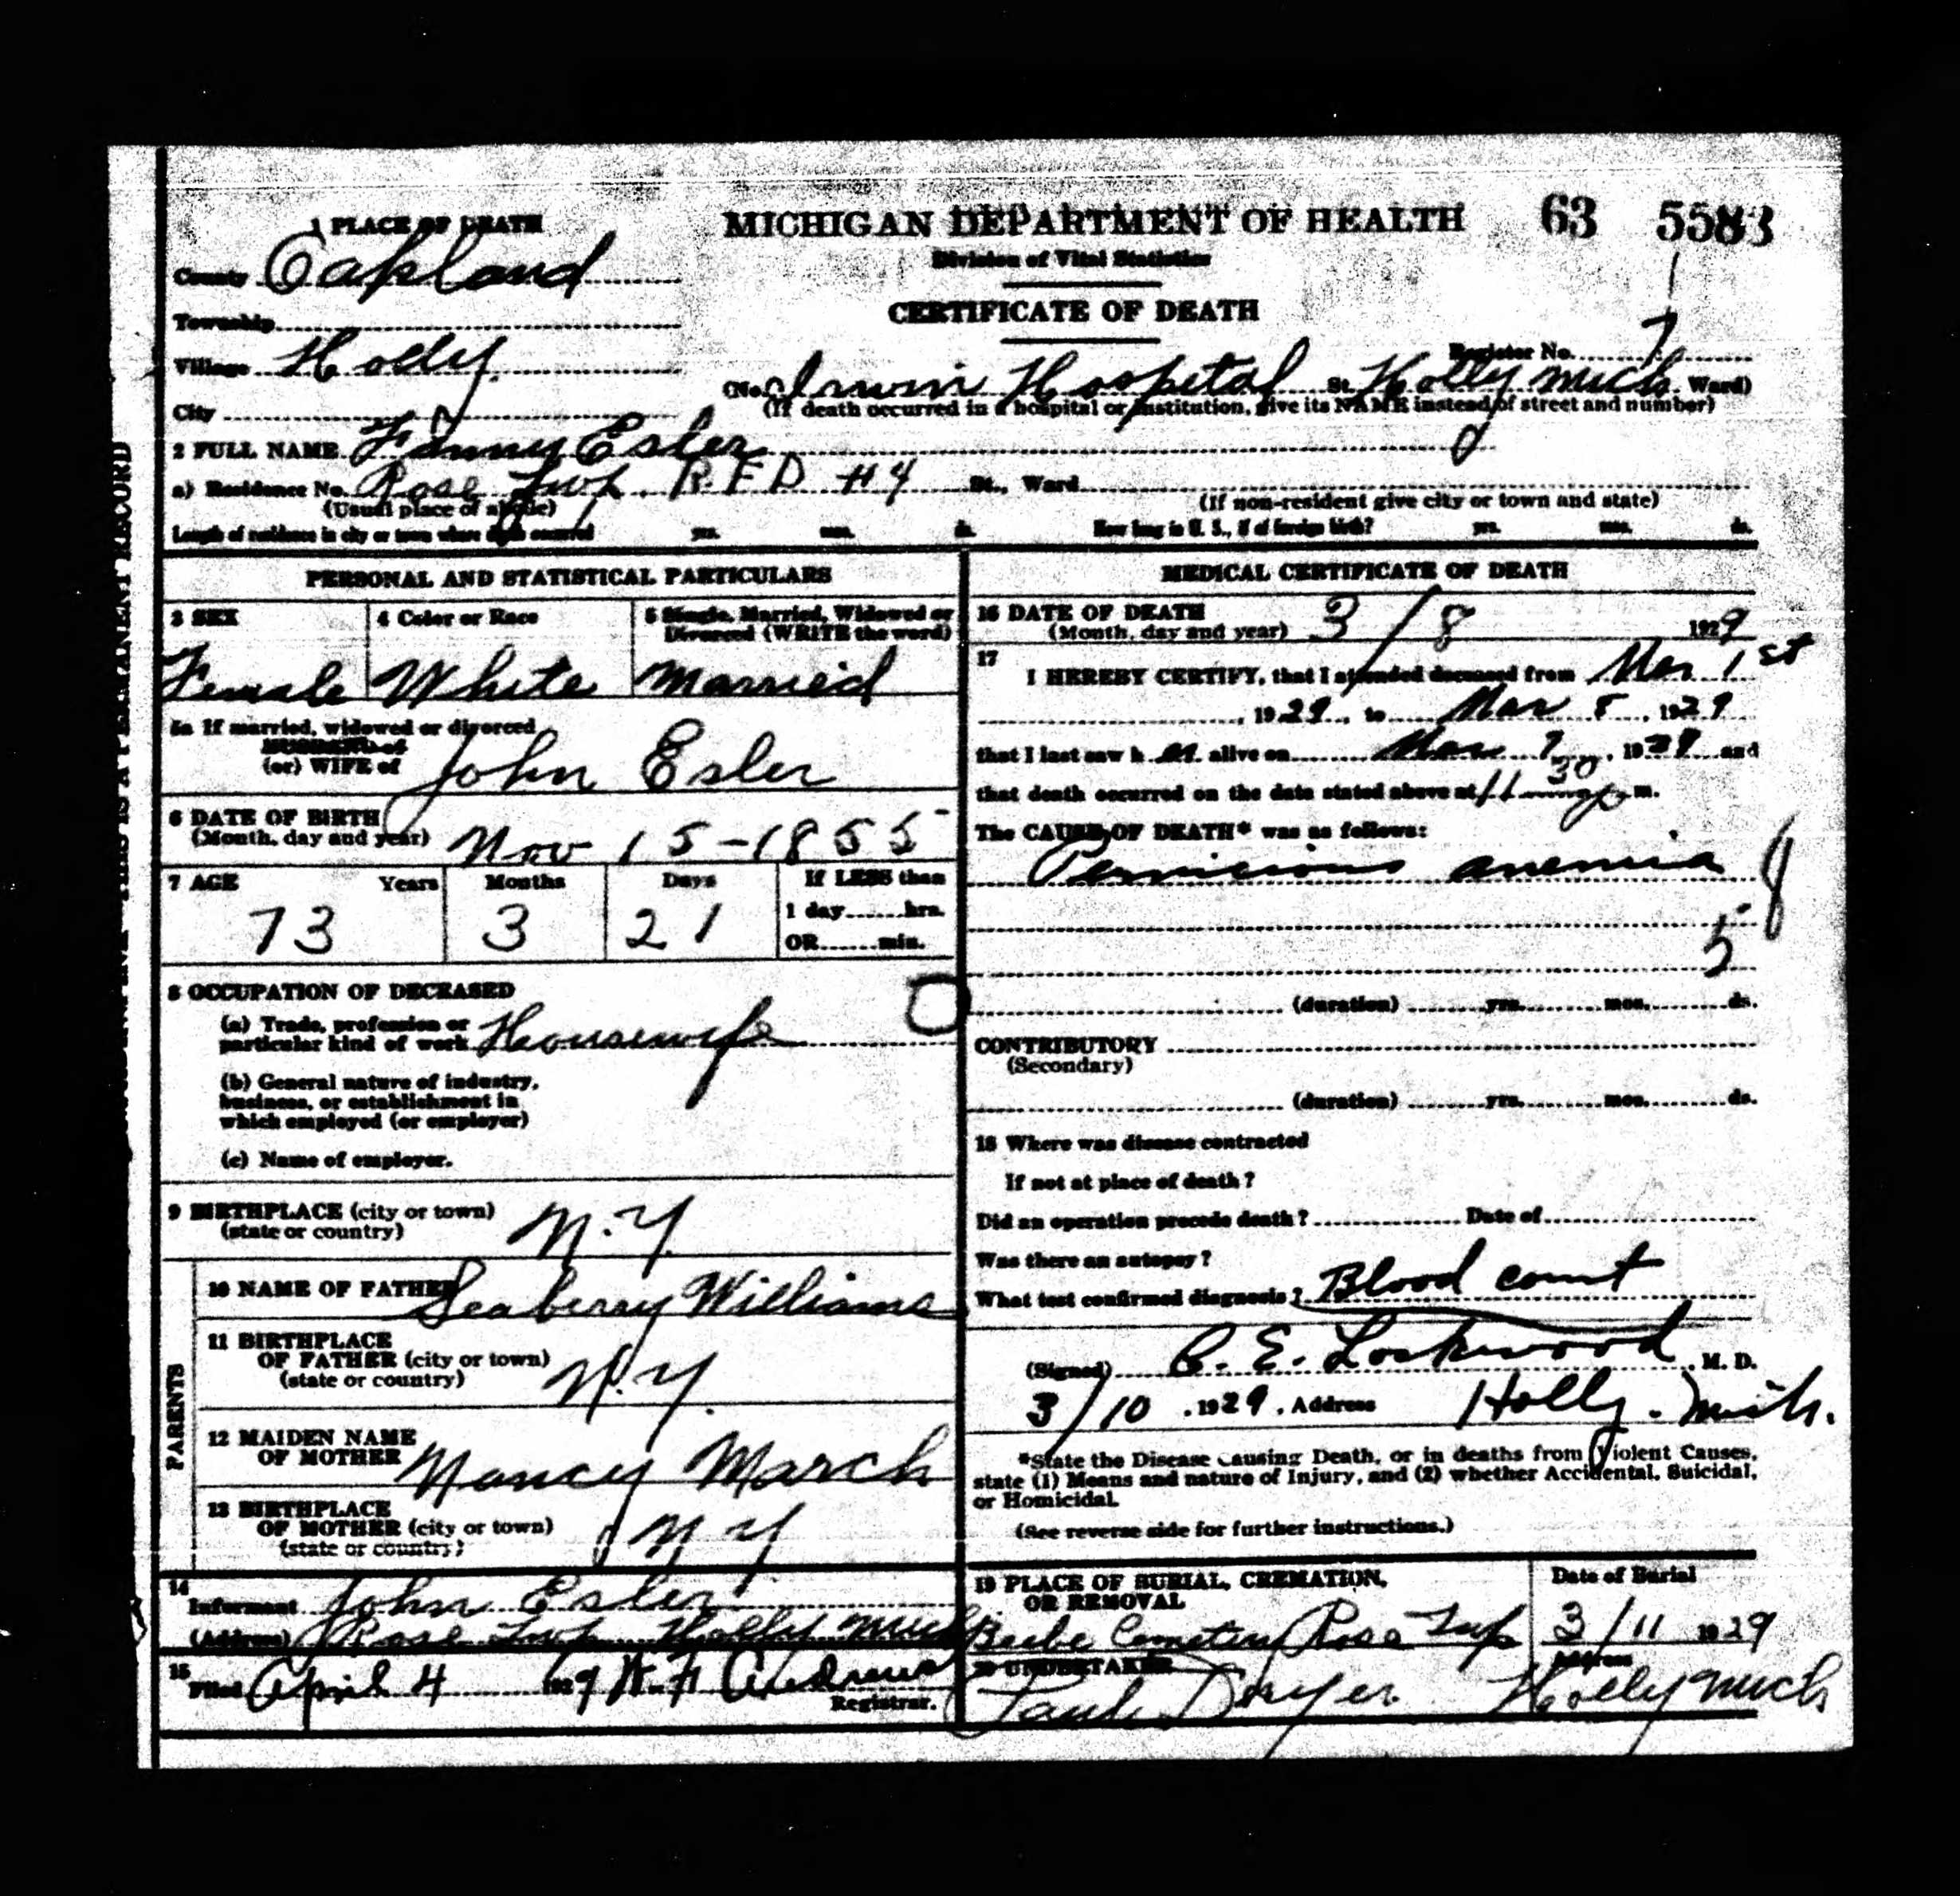 MICHIGAN DEPARTMENT OF HEALTH
63 5583
Division of Vital Statistics
CERTIFICATE OF DEATH
1 PLACE OF DEATH
County Oakland
Township
Village Holly
City
Register No. 7
(No. Irwin Hospital St. Holly Mich Ward)
(If death occurred in a hospital or institution, give its NAME instead of street and number)
2 FULL NAME Fanny Esler
a) Residence No. Rose Twp. R.F.D #4 St., Ward
(Usual place of abode) (If non-resident give city or town and state)
Length of residence in city or town where death occurred yrs. mos. ds. How long in U. S., if of foreign birth? yrs. mos. ds.
PERSONAL AND STATISTICAL PARTICULARS
3 SEX 4 Color or Race 5 Single, Married, Widowed or Divorced (WRITE the word)
Female White Married
5a If married, widowed or divorced
HUSBAND of
(or) WIFE of John Esler
6 DATE OF BIRTH
(Month, day and year) Nov 15-1855
7 AGE Years Months Days If LESS than
73 3 21 1 day hrs.
OR min.
8 OCCUPATION OF DECEASED
(a) Trade, profession or
particular kind of work Housewife
(b) General nature of industry,
business, or establishment in
which employed (or employer)
(c) Name of employer.
9 BIRTHPLACE (city or town)
(state or country) N.Y.
PARENTS
10 NAME OF FATHER Seaberry Williams
11 BIRTHPLACE
OF FATHER (city or town)
(state or country) N.Y.
12 MAIDEN NAME
OF MOTHER Nancy March
13 BIRTHPLACE
OF MOTHER (city or town)
(state or country) N Y
14
Informant John Esler
(Address) Rose Twp Holly Mich
15
Filed April 4 1929 W. F. Andrews
Registrar.
MEDICAL CERTIFICATE OF DEATH
16 DATE OF DEATH
(Month, day and year) 3/8 1929
17
I HEREBY CERTIFY, that I attended deceased from Mar 1st
, 1929, to Mar 8, 1929
that I last saw h er alive on Mar 7, 1929 and
that death occurred on the date stated above at 11 30 p m.
The CAUSE OF DEATH* was as follows:
Pernicious anemia
5
(duration) yrs. mos. ds.
CONTRIBUTORY
(Secondary)
(duration) yrs. mos. ds.
18 Where was disease contracted
If not at place of death?
Did an operation precede death? Date of
Was there an autopsy?
What test confirmed diagnosis? Blood count
(Signed) C. E. Lockwood, M. D.
3/10, 1929, Address Holly. Mich.
*State the Disease Causing Death, or in deaths from Violent Causes,
state (1) Means and nature of Injury, and (2) whether Accidental, Suicidal,
or Homicidal.
(See reverse side for further instructions.)
19 PLACE OF BURIAL, CREMATION,
OR REMOVAL
Beebe Cemetery Rose Twp
Date of Burial
3/11 1929
20 UNDERTAKER Address
Paul Dryer Holly Mich